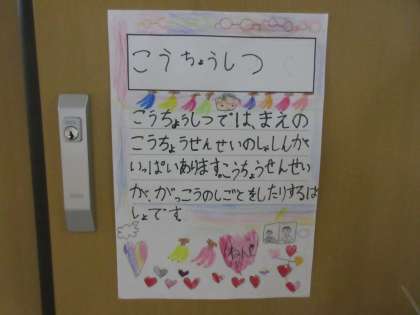 こうちょうしつ
こうちょうしつでは、まえの
こうちょうせんせいのしゃしんが
いっぱいあります。こうちょうせんせい
が、がっこうのしごとをしたりするば
しょです。